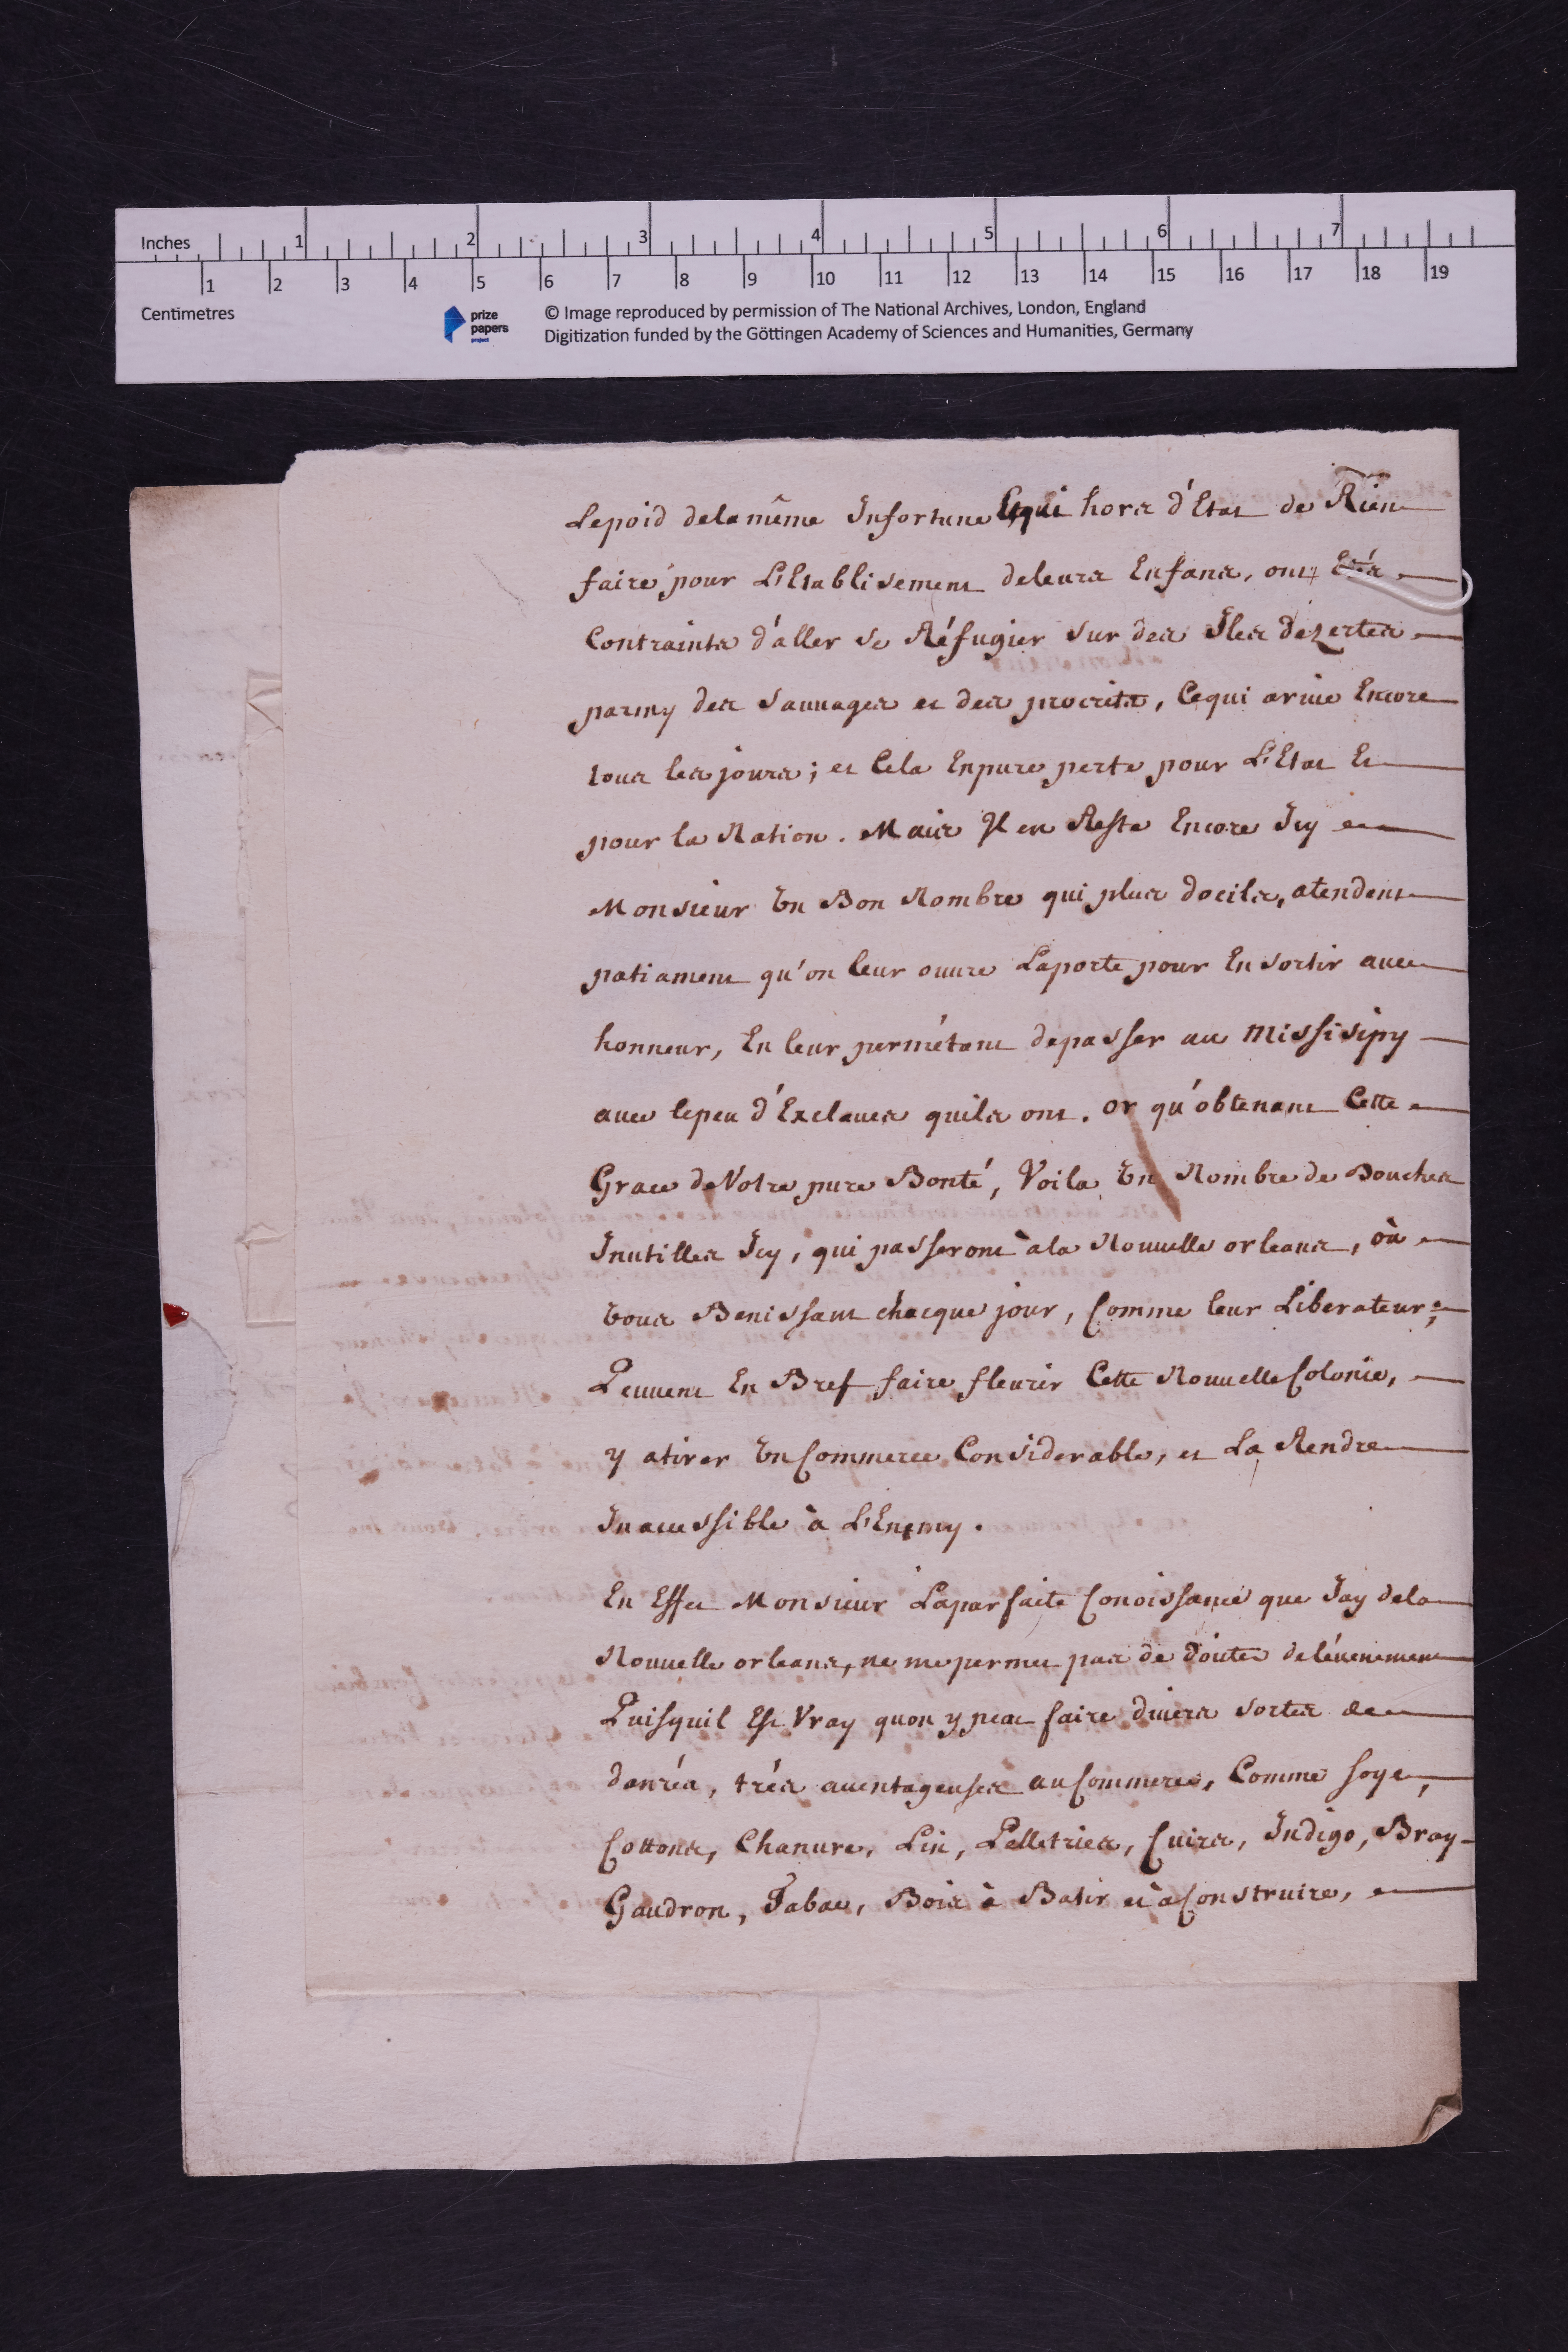 Inches 1 2 3 4 5 6 7
1 2 3 4 5 6 7 8 9 10 11 12 13 14 15 16 17 18 19
Centimetres
prize papers project
© Image reproduced by permission of The National Archives, London, England
Digitization funded by the Göttingen Academy of Sciences and Humanities, Germany
Lepoid dela même Infortune Et qui hors d'Etat de Rien
faire pour L'Etablisement deleurs Enfans, ont Etés
Contraints d'aller se Réfugier sur des Iles dezertes
parmy des Sauvages et des procrits, Cequi arive Encore
tous les jours; et Cela Enpure perte pour L'Etat Et
pour la Nation. Mais Il en Reste Encore Icy
Monsieur Un Bon Nombre qui plus docils, atendent
patiament qu'on leur ouvre Laporte pour En sortir avec
honneur, En leur permétant depasser au Missisipy
avec lepeu d'Exclaves quils ont. Or qu'obtenant Cette
Grace de Votre pure Bonté, Voila Un Nombre de Bouches
Inutilles Icy, qui passeront à la Nouvelle orleans, où
Vous Benissant chacque jour, Comme leur Liberateur;
Peuvent En Bref faire fleurir Cette Nouvelle Colonie,
y atirer Un Commerce Considerable, et La Rendre
Inacessible à L'Enemy.
En Effet Monsieur Laparfaite Conoissance que Jay dela
Nouvelle orleans, ne me permet pas de douter delévenement
Puisquil Est Vray quon y peut faire divers sortes de
danrés, trés aventageuses au Commerce, Comme soye,
Cottons, Chanvre, Lin, Pelletries, Cuirs, Indigo, Bray-
Gaudron, Tabac, Bois à Batir et à Construire,